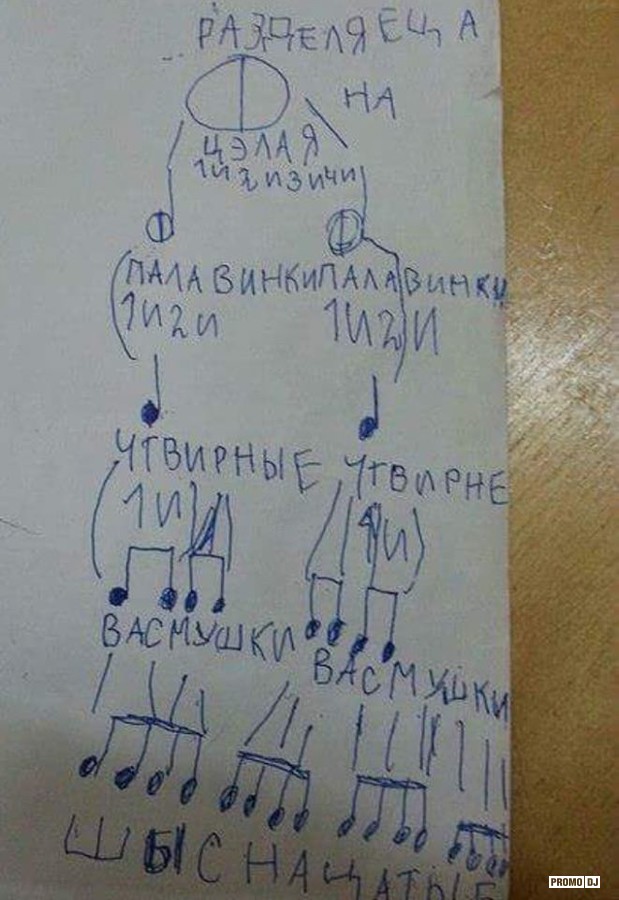 РАЗДЕЛЯЕЦА
НА
ЦЭЛАЯ
1И 2ИЗИЧИ
ПАЛАВИНКИ ПАЛАВИНКИ
1И2И 1И2И
ЧТВИРНЫЕ ЧТВИРНЕ
1И 1И
ВАСМУШКИ
ВАСМУШКИ
ШЫСНАЦАТЫЕ
PROMO DJ